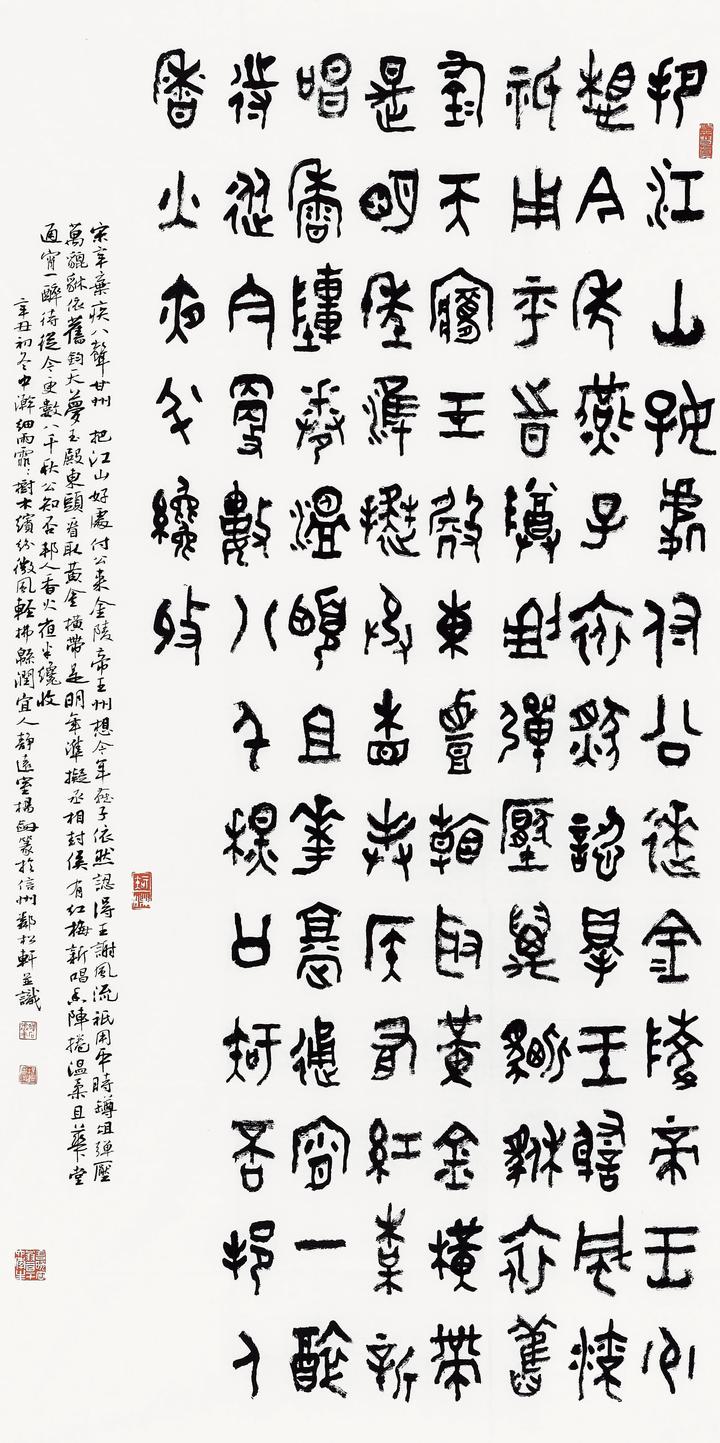 把江山好處付公來金陵帝王州
想今年燕子依然認得王謝風流
祇用平時尊俎彈壓萬貔貅依舊
鈞天夢玉殿東頭看取黃金橫帶
是明年準擬丞相封侯有紅梅新
唱香陣捲溫柔且華堂通宵一醉
待從今更數八千秋公知否邦人
香火夜半纔收
宋辛棄疾八聲甘州 把江山好處付公來金陵帝王州想今年燕子依然認得王謝風流祇用平時罇俎彈壓
萬貔貅依舊鈞天夢玉殿東頭看取黃金橫帶是明年準擬丞相封侯有紅梅新唱香陣捲溫柔且華堂
通宵一醉待從今更數八千秋公知否邦人香火夜半纔收
辛丑初冬中澣細雨霏霏樹木繽紛微風輕拂緜潤宜人靜遠室楊篆於信州鄰松軒並識